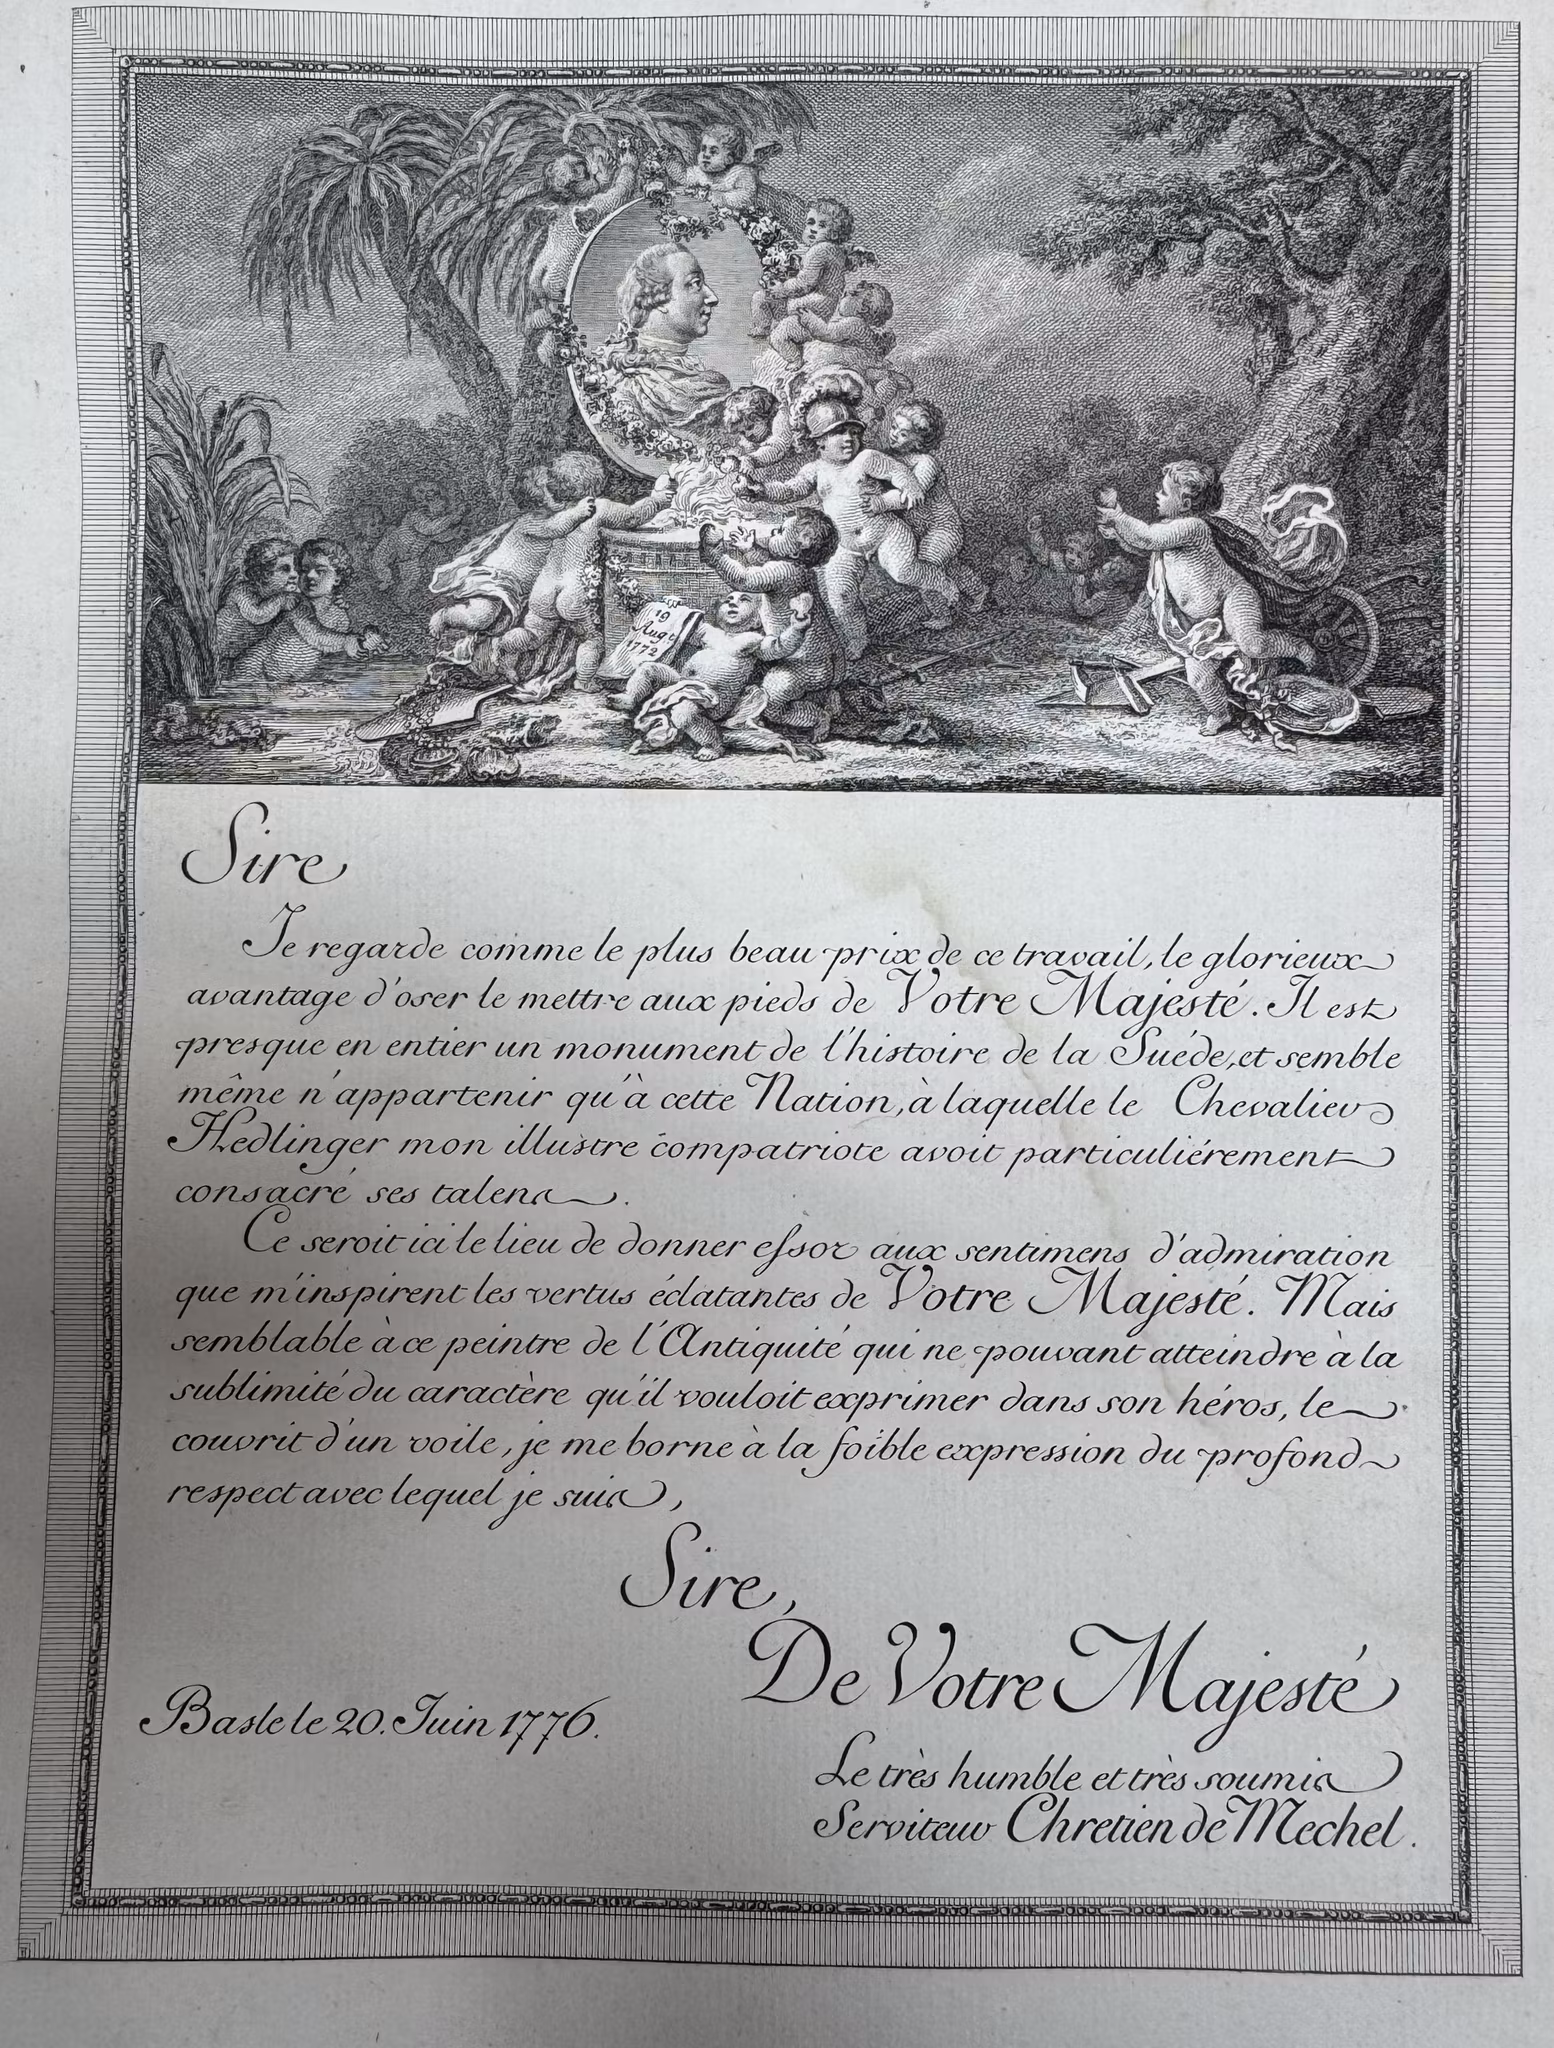 19
Augt
1772
Sire
Je regarde comme le plus beau prix de ce travail, le glorieux
avantage d'oser le mettre aux pieds de Votre Majesté. Il est
presque en entier un monument de l'histoire de la Suéde, et semble
même n'appartenir qu'à cette Nation, à laquelle le Chevalier
Hedlinger mon illustre compatriote avoit particuliérement
consacré ses talens.
Ce seroit ici le lieu de donner essor aux sentimens d'admiration
que m'inspirent les vertus éclatantes de Votre Majesté. Mais
semblable à ce peintre de l'Antiquité qui ne pouvant atteindre à la
sublimité du caractère qu'il vouloit exprimer dans son héros, le
couvrit d'un voile, je me borne à la foible expression du profond
respect avec lequel je suis,
Sire,
De Votre Majesté
Basle le 20. Juin 1776.
Le très humble et très soumis
Serviteur Chretien de Mechel.